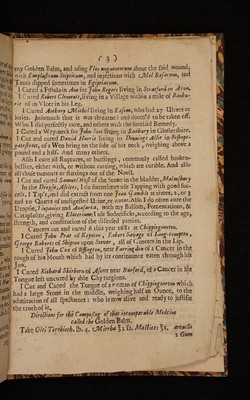 ( 3 )
my Golden Balm, and using Flos unguentorum about the said wound,
with Emplastrum Stipticum, and injections with Mel Rosarum, and
Tents dipped sometimes in Egiptiacum.
I Cured a Fistula in Ano for John Rogers living in Stratford on Avon.
I Cured Robert Clements, living in a Village within a mile of
of an Vlcer in his Leg.
I Cured Anthony Michel living in Easam, who had 27 Ulcers or
holes. Insomuch that it was threatned and doom'd to be taken off.
Who I did perfectly cure, and others with the foresaid Remedy.
I Cured a Wry-neck for John Noe living in Banbury in Glostershire.
I Cut and cured David Harris living to Downings Aller in Bishop-
gatestreet, of a Wen bring on the side of his neck, weighing above a
pound and a half. And many others.
Also I cure all Ruptures, or burstings, commonly called broken-
bellies, either with, or without cutting, which are curable. And also
all those tumours or swellings out of the Navil.
I Cut and cured Samuel West of the Stone in the bladder, Malmsbury
In the Dropsie, Ascites, I do sometimes use Tapping with good suc-
cess, I Tap't, and did extract from one Joan Gamble at times, 2, or 3
and 20 Quarts of undigested Urine, or water. Also I do often cure the
Dropsie, Tympanites and Anasarca, with my Balsom, Fomentations, &
Cataplasms, giving Elaterium I use Sudorificks, according to the age,
strength, and constitution of the diseased person.
Cancers cut and cured di this year 1681 at Chippingnorton.
I Cured John Prat of Kepton, Robert Savage of Long-compton,
George Roberts of Shipton upon Stower, all of Cancers in the Lip.
I Cured John Cox of Effington, near Farringdon of a Cancer in the
rough of his Mouth which had by its continuance eaten through his
Jaw.
I Cured Richard Skirborn of Ascott near Burford, of a Cancer in his
Tongue left uncured by able Chyrurgions.
I Cut and Cured the Tongue of a woman of Chippingnorton which
had a large Stone in the middle, weighing half an Ounce, to the
admiration of all spectators; who is now alive and ready to justifie
the truth of it.
Directions for the Composing of that incomparable Medicine
called the Golden Balm.
Take Olei Terebinth. lb. 4. Mirrhæ ℥2 ss. Mastices ℥1.
2 Gum